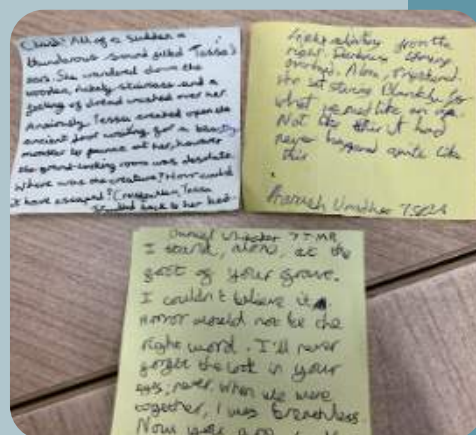 Crash! All of a sudden a
thunderous sound filled Tessa's
ears. She wandered down the
wooden, rickety staircase and a
feeling of dread washed over her.
Anxiously, Tessa creaked open the
ancient door waiting for a
monster to pounce at her, however
the grand-looking room was desolate.
Where was the creature? How could
it have escaped? Tessa
back to her bed
from the
right. Darkness
Alone, frightened.
She sat staring blankly for
what seemed like an age.
Not like this it had
never happened quite like
this
I stand, alone, at the
foot of your grave.
I couldn't believe it.
Horror would not be the
right word. I'll never
forget the look in your
eyes; never. When we were
together, I was breathless.
Now